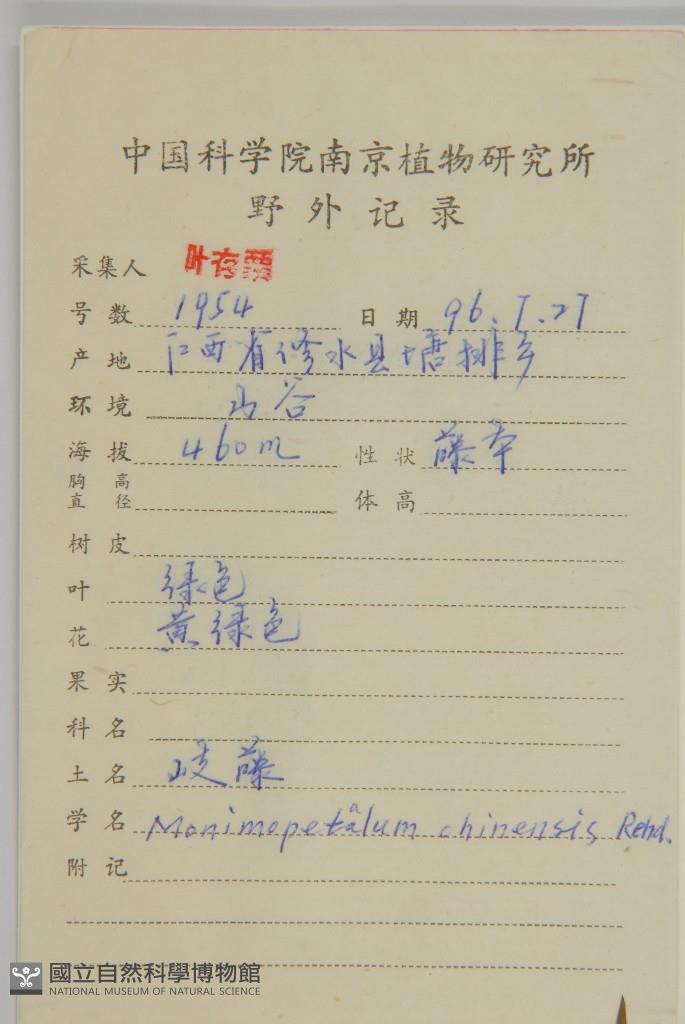 中国科学院南京植物研究所
野外记录
采集人 叶存粟
号数 1954 日期 96.5.27
产地 江西省修水县塘排乡
环境 山谷
海拔 460m 性状 藤本
胸高直径 体高
树皮
叶 绿色
花 黄绿色
果实
科名
土名 岐藤
学名 Monimopetalum chinensis Rehd.
附记
國立自然科學博物館
NATIONAL MUSEUM OF NATURAL SCIENCE